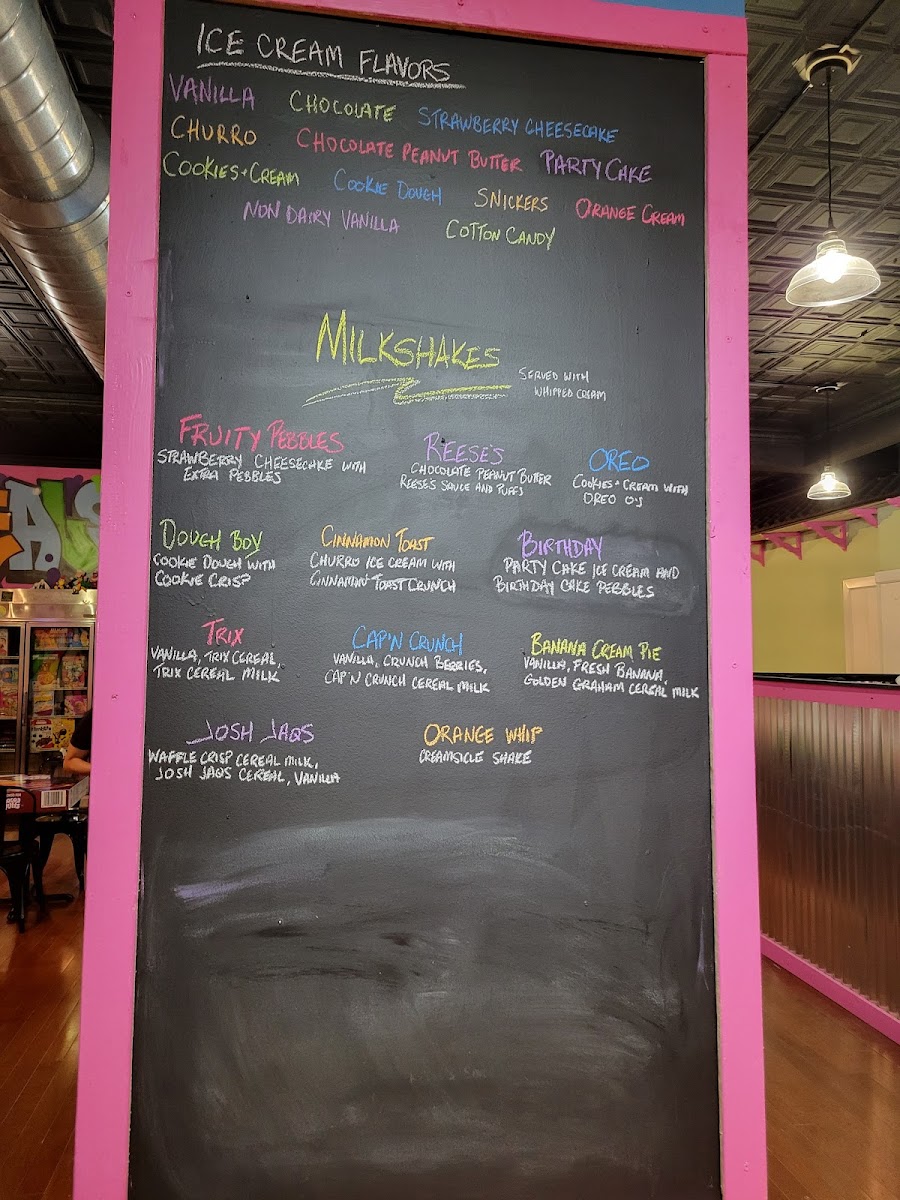 ICE CREAM FLAVORS
VANILLA CHOCOLATE STRAWBERRY CHEESECAKE
CHURRO CHOCOLATE PEANUT BUTTER PARTY CAKE
COOKIES+CREAM COOKIE DOUGH SNICKERS ORANGE CREAM
NON DAIRY VANILLA COTTON CANDY
MILKSHAKES
SERVED WITH
WHIPPED CREAM
FRUITY PEBBLES
STRAWBERRY CHEESECAKE WITH
EXTRA PEBBLES
REESE'S
CHOCOLATE PEANUT BUTTER
REESE'S SAUCE AND PUFFS
OREO
COOKIES+CREAM WITH
OREO O'S
DOUGH BOY
COOKIE DOUGH WITH
COOKIE CRISP
CINNAMON TOAST
CHURRO ICE CREAM WITH
CINNAMON TOAST CRUNCH
BIRTHDAY
PARTY CAKE ICE CREAM AND
BIRTHDAY CAKE PEBBLES
TRIX
VANILLA, TRIX CEREAL,
TRIX CEREAL MILK
CAP'N CRUNCH
VANILLA, CRUNCH BERRIES,
CAP'N CRUNCH CEREAL MILK
BANANA CREAM PIE
VANILLA, FRESH BANANA,
GOLDEN GRAHAM CEREAL MILK
JOSH JAQS
WAFFLE CRISP CEREAL MILK,
JOSH JAQS CEREAL, VANILLA
ORANGE WHIP
CREAMSICLE SHAKE